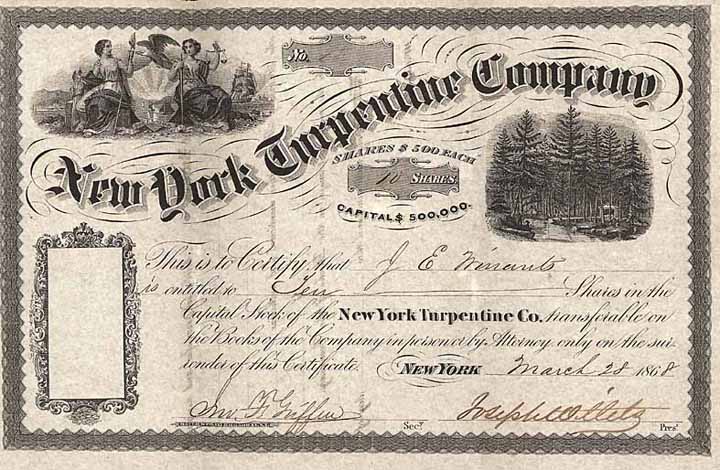 No.
New York Turpentine Company
SHARES $ 500 EACH
10 SHARES.
CAPITAL $ 500,000.
This is to Certify, that J E Winants
is entitled to Ten Shares in the
Capital Stock of the New York Turpentine Co. transferable on
the Books of the Company in person or by Attorney only on the sur-
render of this Certificate. NEW YORK March 28 1868
Griffin Secy. Joseph Prest